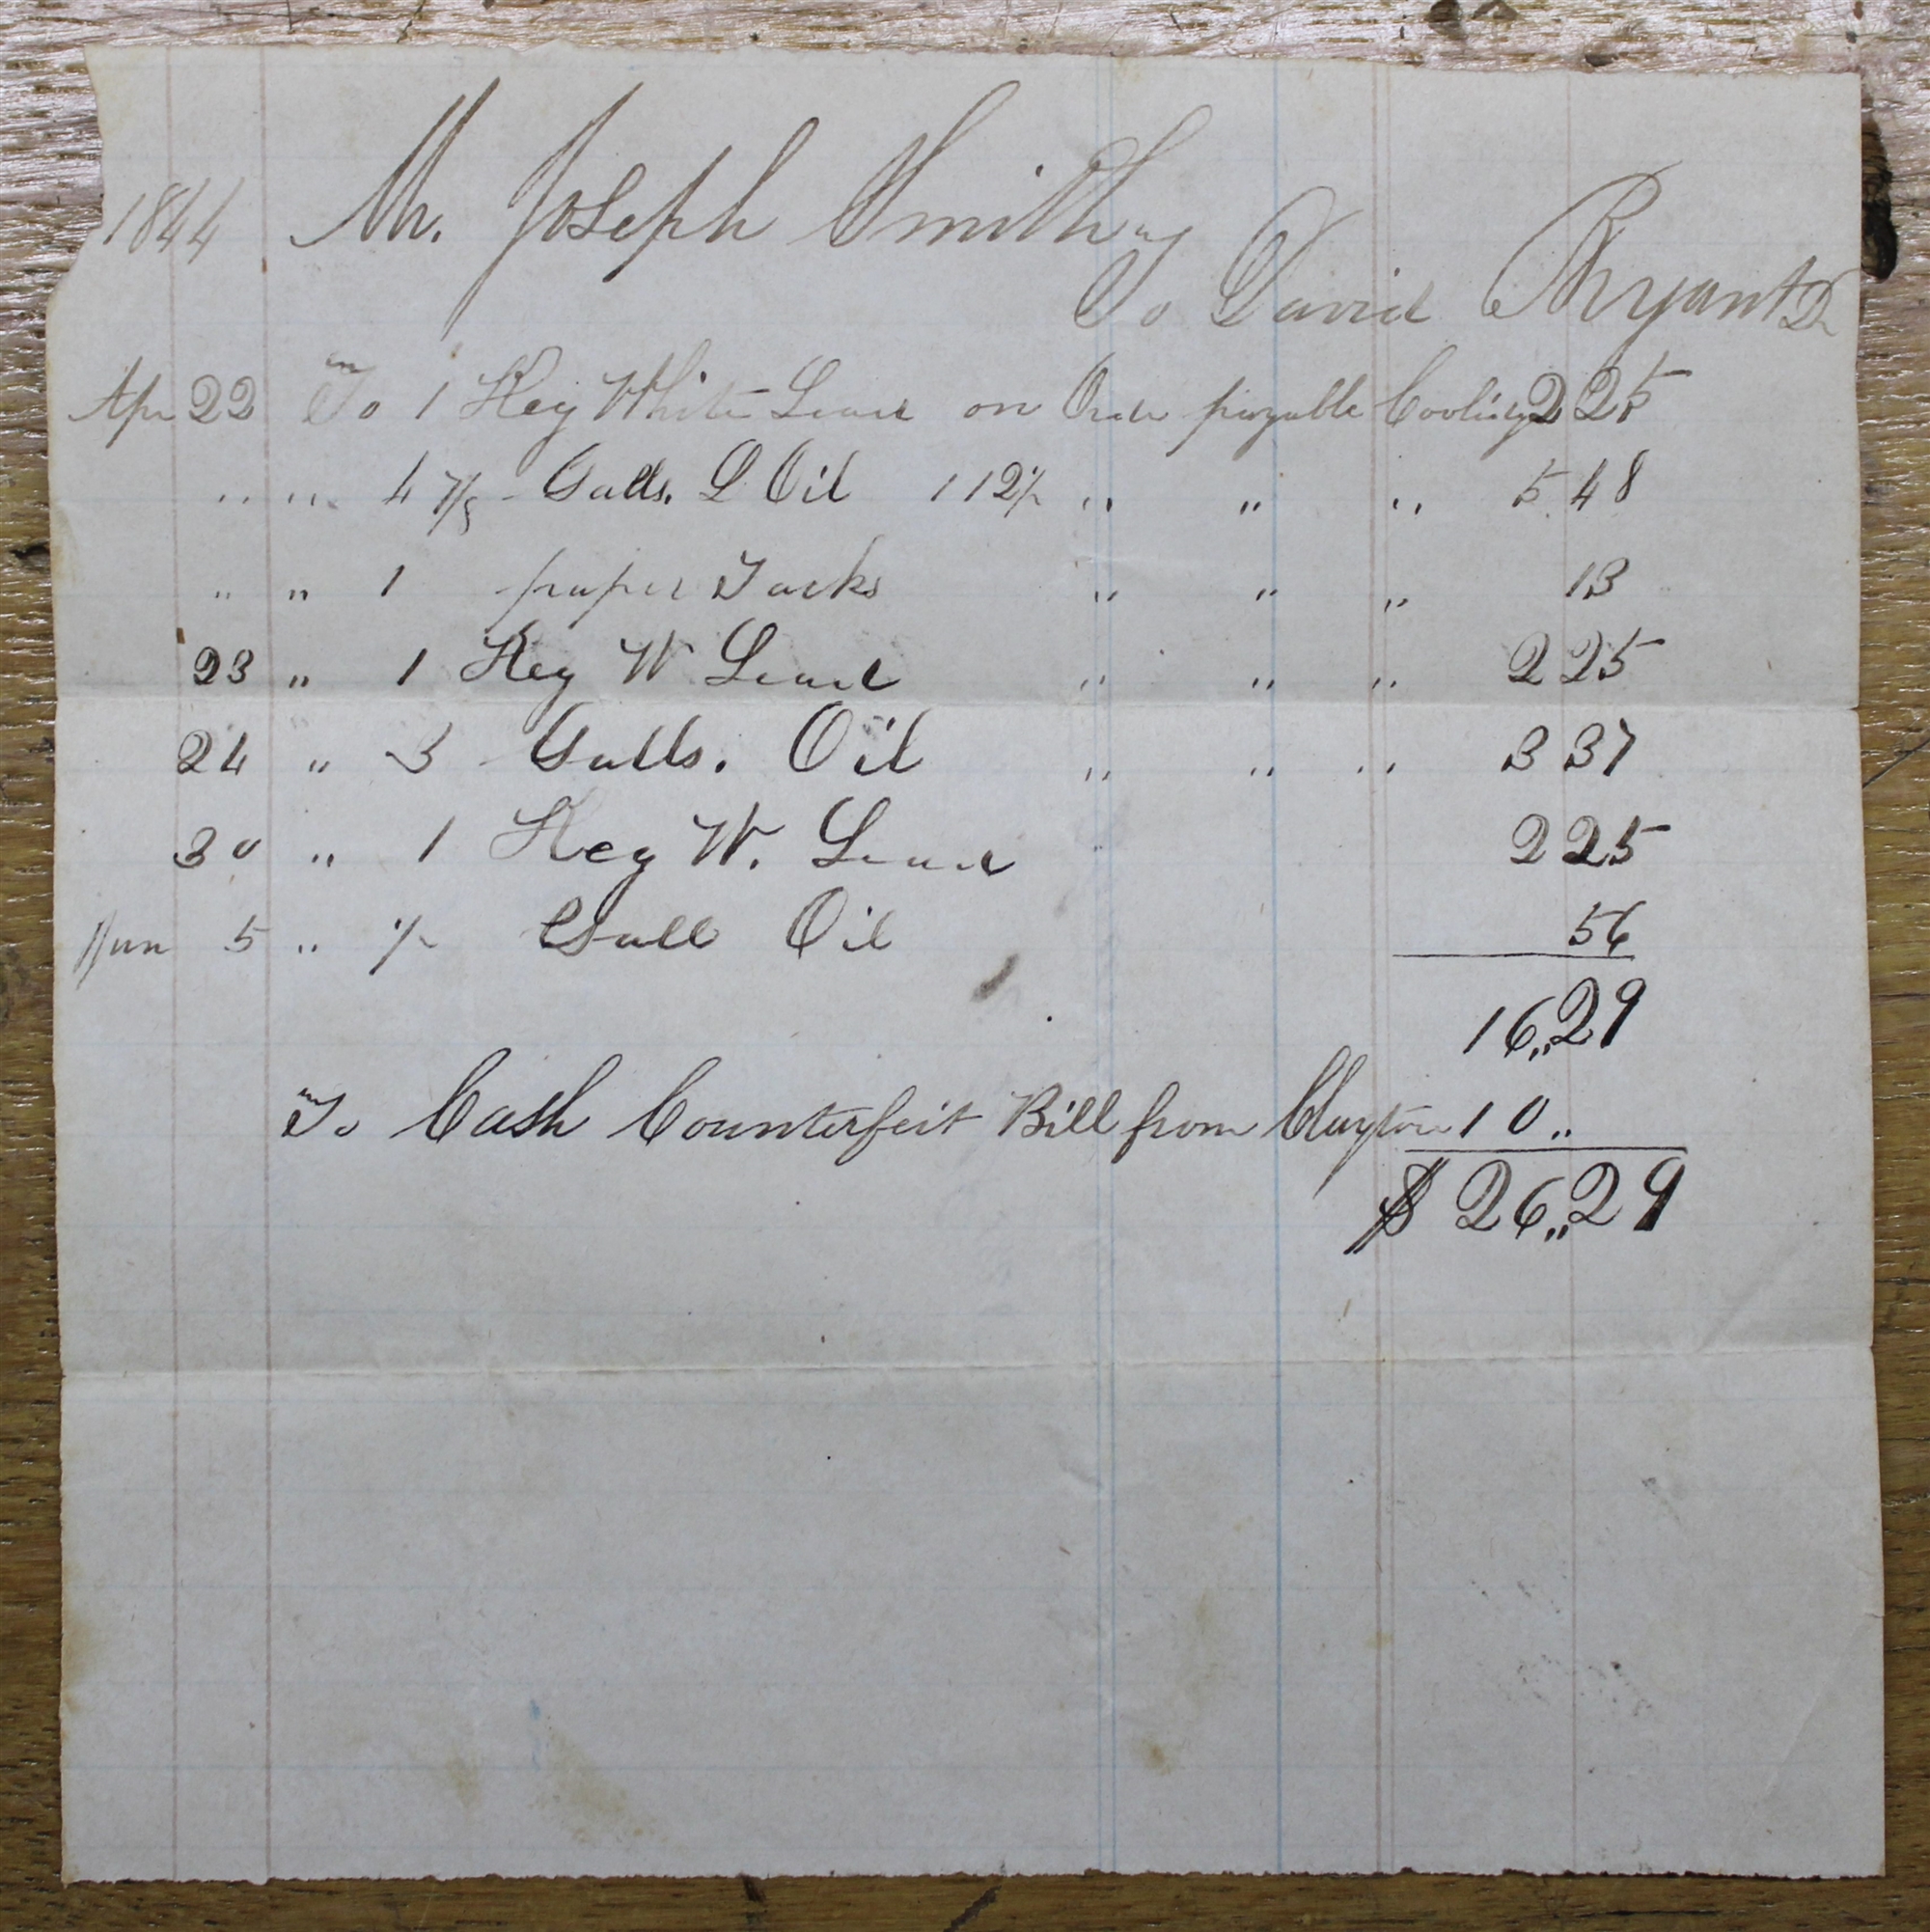 1844 Mr. Joseph Smith
To David Bryant Dr
Apr 22 To 1 Keg White Lead on Order payable Coolidge 2 25
" " 4 7/8 Galls. L Oil 112½ " " " 5 48
" " 1 paper Tacks " " " 13
23 " 1 Keg W Lead " " " 2 25
24 " 3 Galls. Oil " " " 3 37
30 " 1 Keg W. Lead 2 25
Jun 5 " ½ Gall Oil 56
16,,29
To Cash Counterfeit Bill from Clayton 10 ,,
$ 26,,29